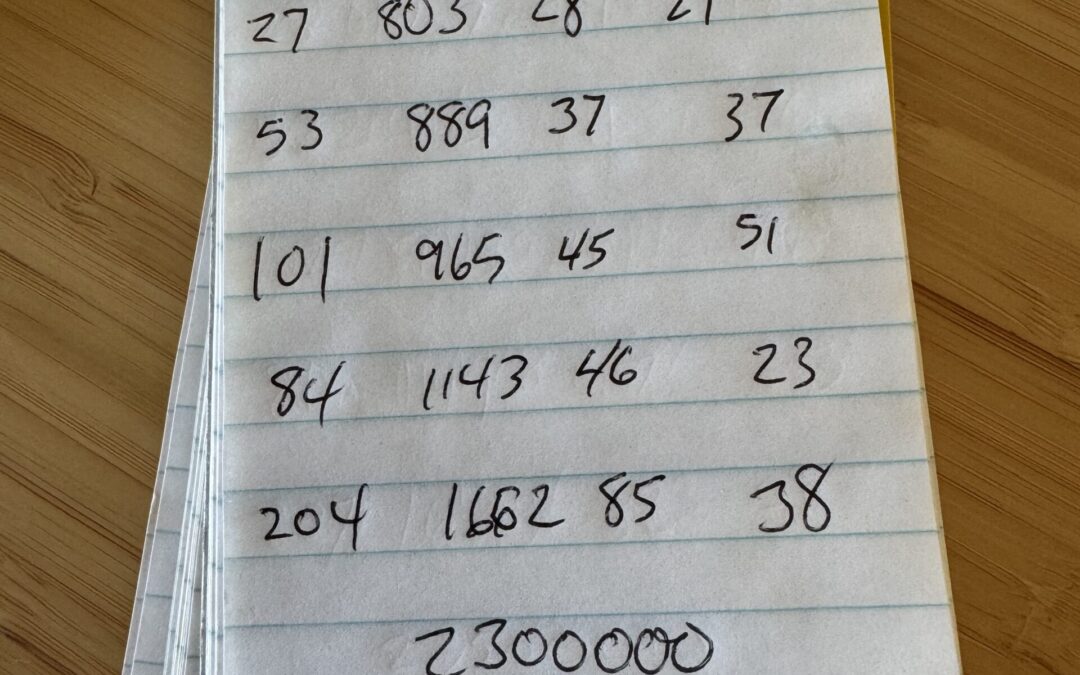 27 803 28 21
53 889 37 37
101 965 45 51
84 1143 46 23
204 1662 85 38
2300000